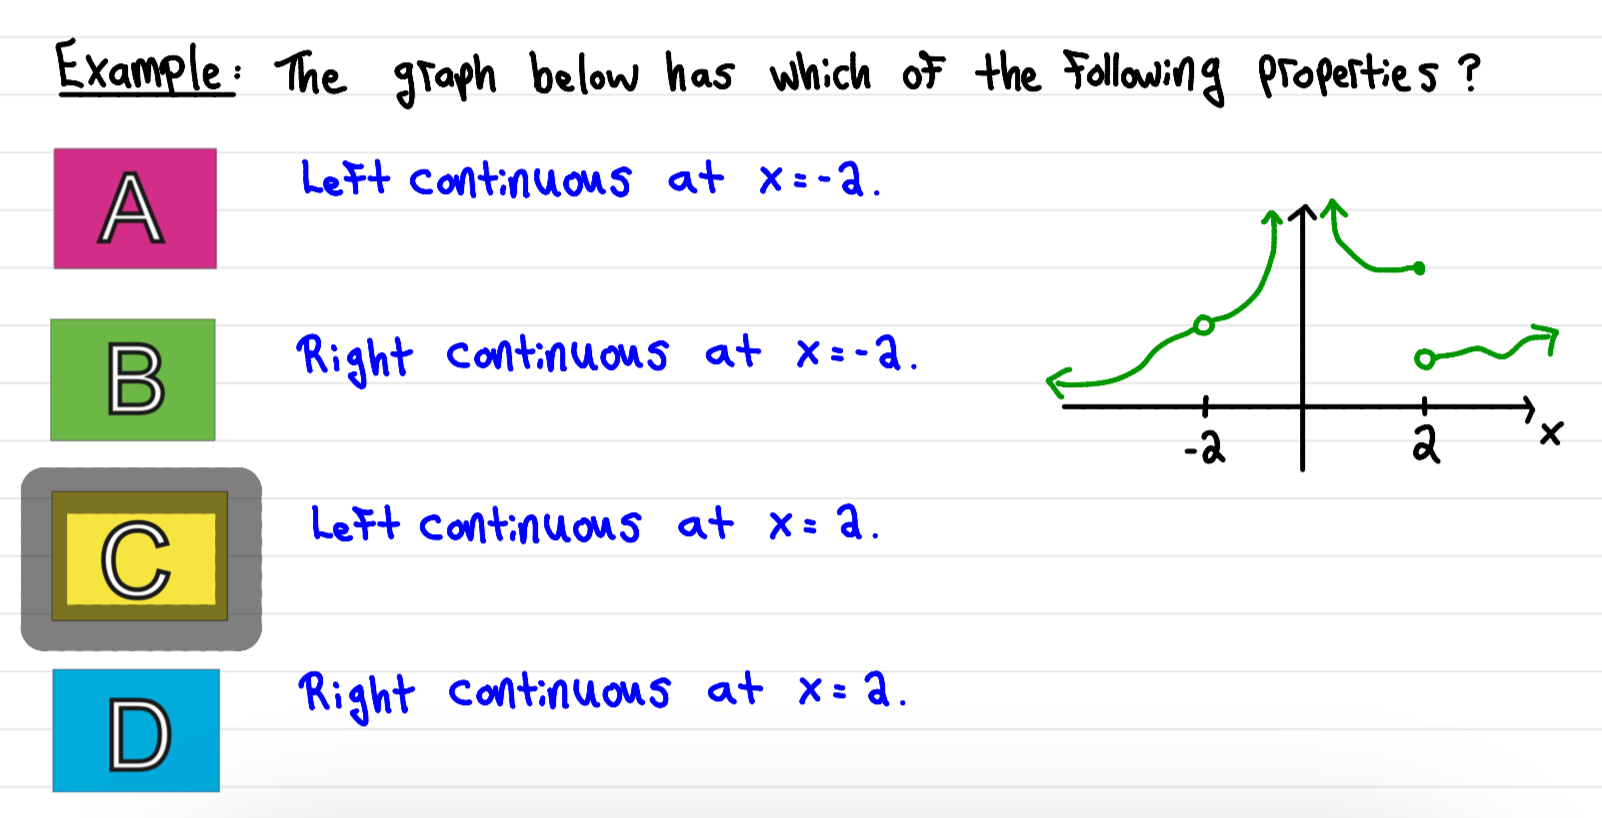 Example: The graph below has which of the following properties?
A Left continuous at x=-2.
B Right continuous at x=-2.
C Left continuous at x=2.
D Right continuous at x=2.
-2 2 x